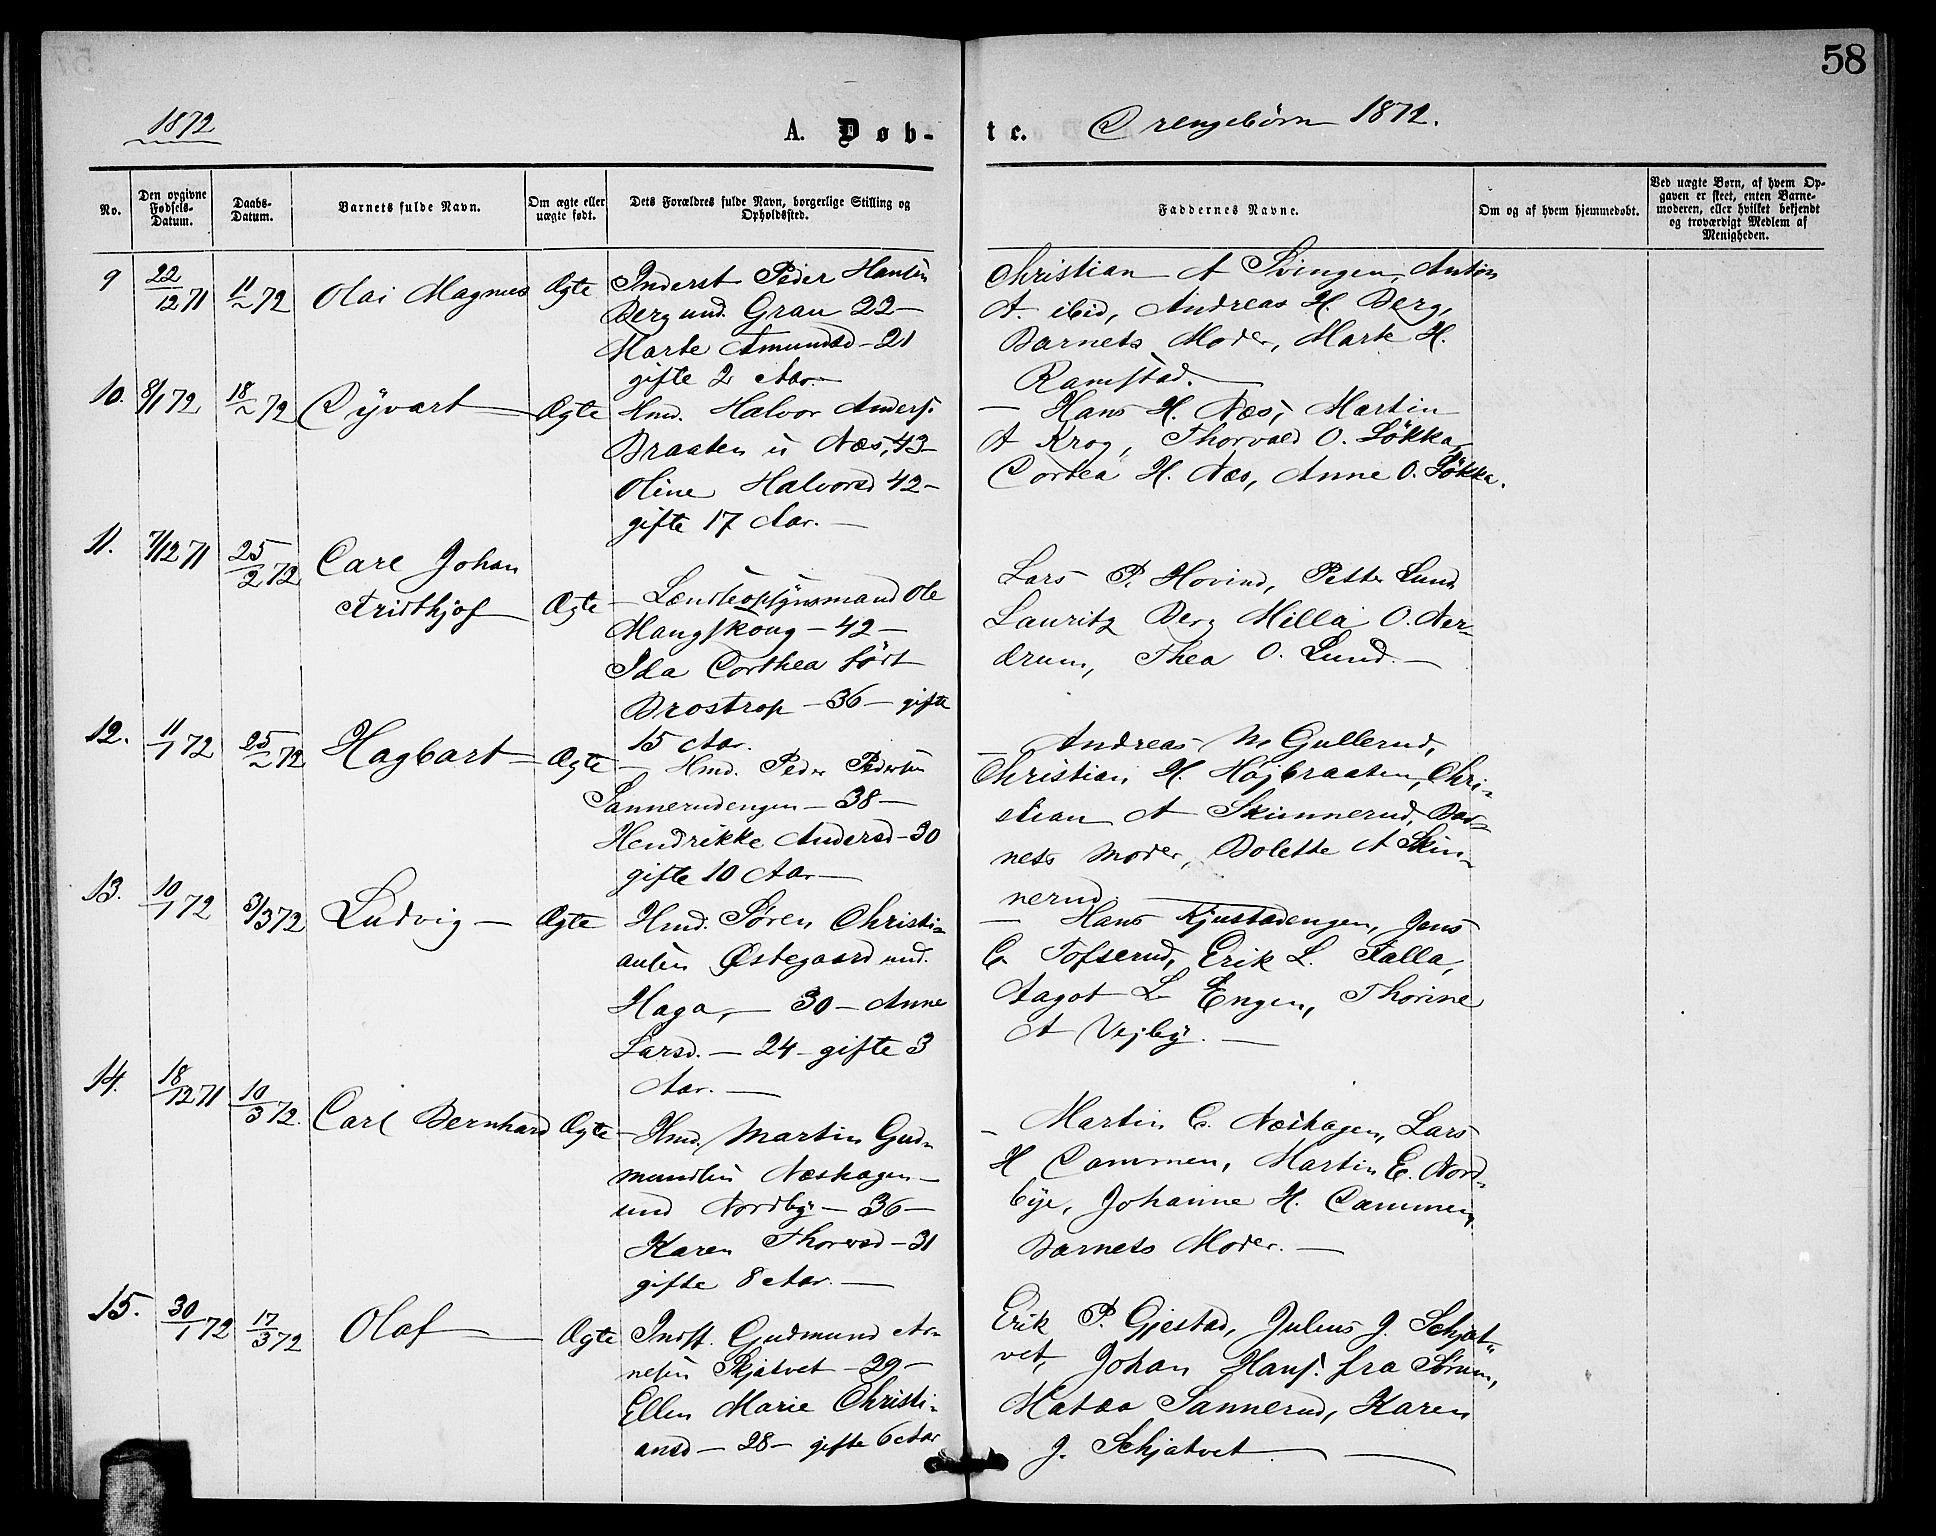 58
1872
A. Døb-
te.
Drengebørn 1872.
No.
Den opgivne Fødsels-Datum.
Daabs-Datum.
Barnets fulde Navn.
Om ægte eller uægte født.
Dets Forældres fulde Navn, borgerlige Stilling og Opholdssted.
Faddernes Navne.
Om og af hvem hjemmedøbt.
Ved uægte Børn, af hvem Opgaven er skeet, enten Barnemoderen, eller hvilket bekjendt og troværdigt Medlem af Menigheden.
9 22/12 71 11/2 72 Olai Magnus Ægte
Inderst Peder Hansen
Berg und. Grau 22 —
Marte Amundsd — 21
gifte 2 Aar. —
Christian A Svingen, Anton
A. ibid, Andreas H. Berg,
Barnets Moder, Marte H.
Ramstad. —
10. 8/1 72 18/2 72 Dyvart — Ægte
Hmd. Halvor Anders.
Braaten u Næs, 43 —
Oline Halvorsd 42 —
gifte 17 Aar. —
— Hans H. Næs, Martin
A Krog, Thorvald O. Løkka,
Dortea H. Næs, Anne O. Løkka.
11. 7/12 71 25/2 72 Carl Johan
Fridthjof — Ægte
— Lændseopsynsmand Ole
Mangskoug — 42 —
Ida Dorthea født
Brostrop — 36 — gifte
15 Aar.
Lars P. Hovind, Petter Lund
Lauritz Berg Milla O. Ner-
drum, Thea O. Lund. —
12. 11/1 72 25/2 72 Hagbart — Ægte
— Hmd. Peder Pedersen
Sannerudengen — 38 —
Hendrikke Andersd — 30
gifte 10 Aar —
— Andreas M Gullerud,
Christian H. Højbraaten, Chri-
stian A Skinnerud, Bar-
nets Moder, Bolette A Skin-
nerud —
13. 10/1 72 3/3 72 Ludvig — Ægte
Hmd. Søren Christi-
ansen Østegaard und.
Haga, — 30 — Anne
Larsd. — 24 — gifte 3
Aar. —
— Hans Kjustadengen, Jens
C. Tofserud, Erik L. Falla,
Aagot L Engen, Thorine
A Vejby. —
14. 18/12 71 10/3 72. Carl Bernhard Ægte
— Hmd. Martin Gud-
mundsen Næshagen —
und Nordby — 36 —
Karen Thorersd — 31
gifte 8 Aar. —
— Martin C. Næshagen, Lars
H Dammen, Martin E. Nord-
bye, Johanne H. Dammen,
Barnets Moder. —
15. 30/1 72 17/3 72 Olaf — Ægte
Indst. Gudmund Ar-
nesen Skjatvet — 29 —
Ellen Marie Christi-
ansd — 28 — gifte 6 Aar
Erik P. Gjestad, Julius J. Schjat-
vet, Johan Hans. fra Sørum,
Matea Sannerud, Karen
J. Schjatvet —